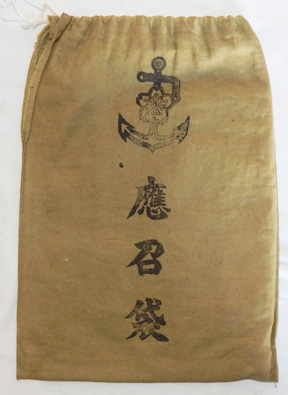 應召袋